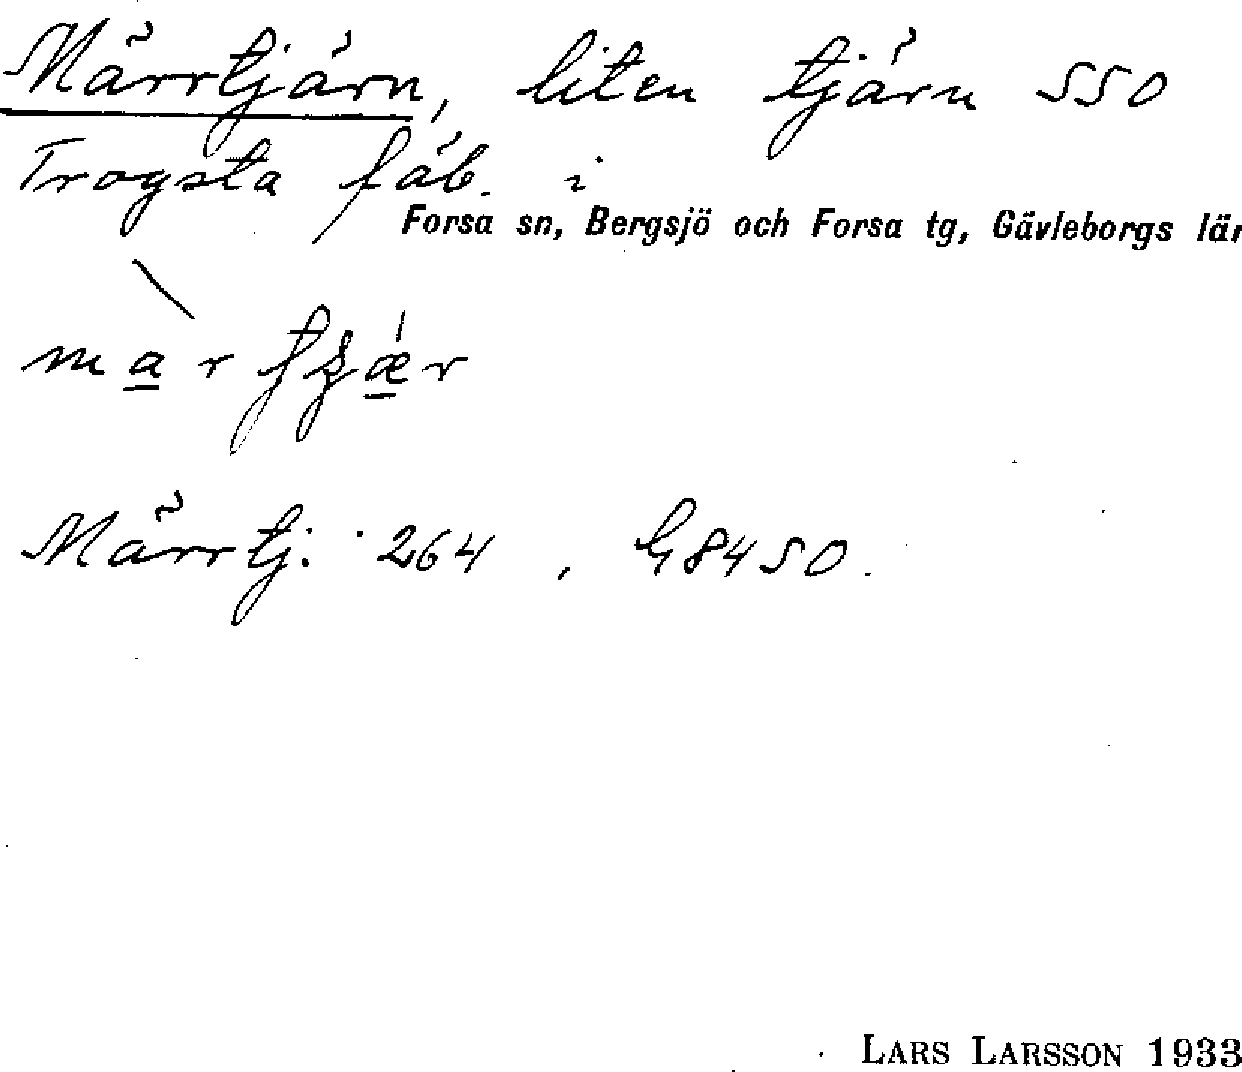 Märrtjärn, liten tjärn SSO
Trogsta fäb. i
Forsa sn, Bergsjö och Forsa tg, Gävleborgs län
Märrtj. 264, G8450.
LARS LARSSON 1933